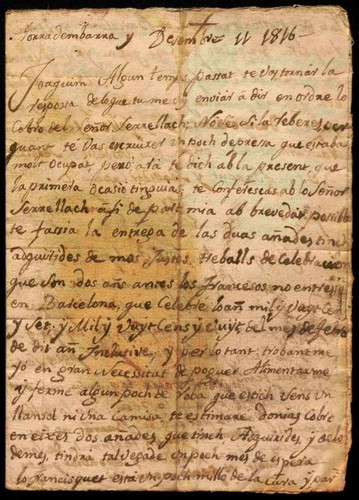 Torradembarra y Desembre 11 1816
Joaquim Algun temps passat te vas tornar la
resposta de lo que tu me enviar á dir en orde lo
Cobro del señor Serrellach; No sé si la reberes, per
quant te vas escriurer un poch depresa que estaba
molt ocupat, peró ara te dich ab la present, que
la primera ocasio tinguias, te Conferescas ab o Señor
Serrellach á fi de part mia ab brevedat possible
te fassia la entrega de las duas añadas tinch
adquirides de mos Justos treballs de Celebracion
que son dos añs antes los Francesos no entresen
en Barcelona, que Celebre lo añ mil y Vuyt Cens
y Set, y Mil y Vuyt Cens y Vuyt del mes de
de dit añ Inclusive, y per lo tant trobanme
Yo en gran Necessitat de poguer Alimentarme
y ferme algun poch de roba que estich sens un
llansol ni una Camisa, te estimare donias Cobro
en eixes dos añades, que tinch Adquirides, y de lo
demes, tindrá tal vegade un poch mes de espera
lo Francisquet está un poch millo de la Cara y